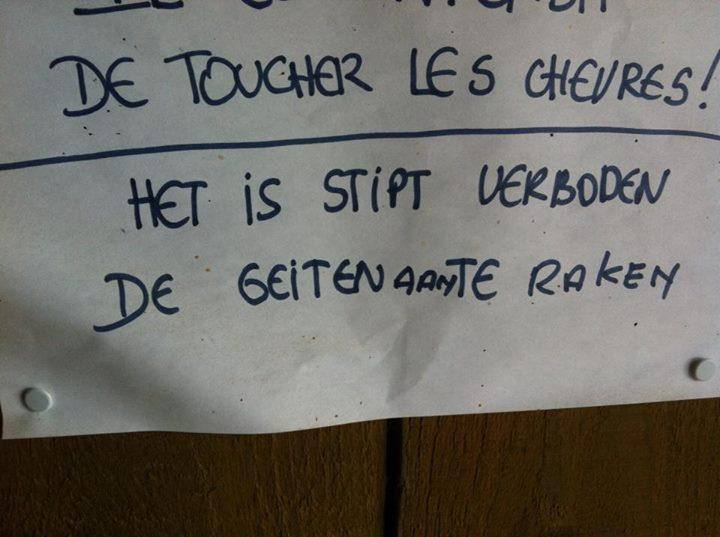 DE TOUCHER LES CHEVRES!
HET iS STiPT VERBODEN
DE GEiTEN AANTE RAKEN